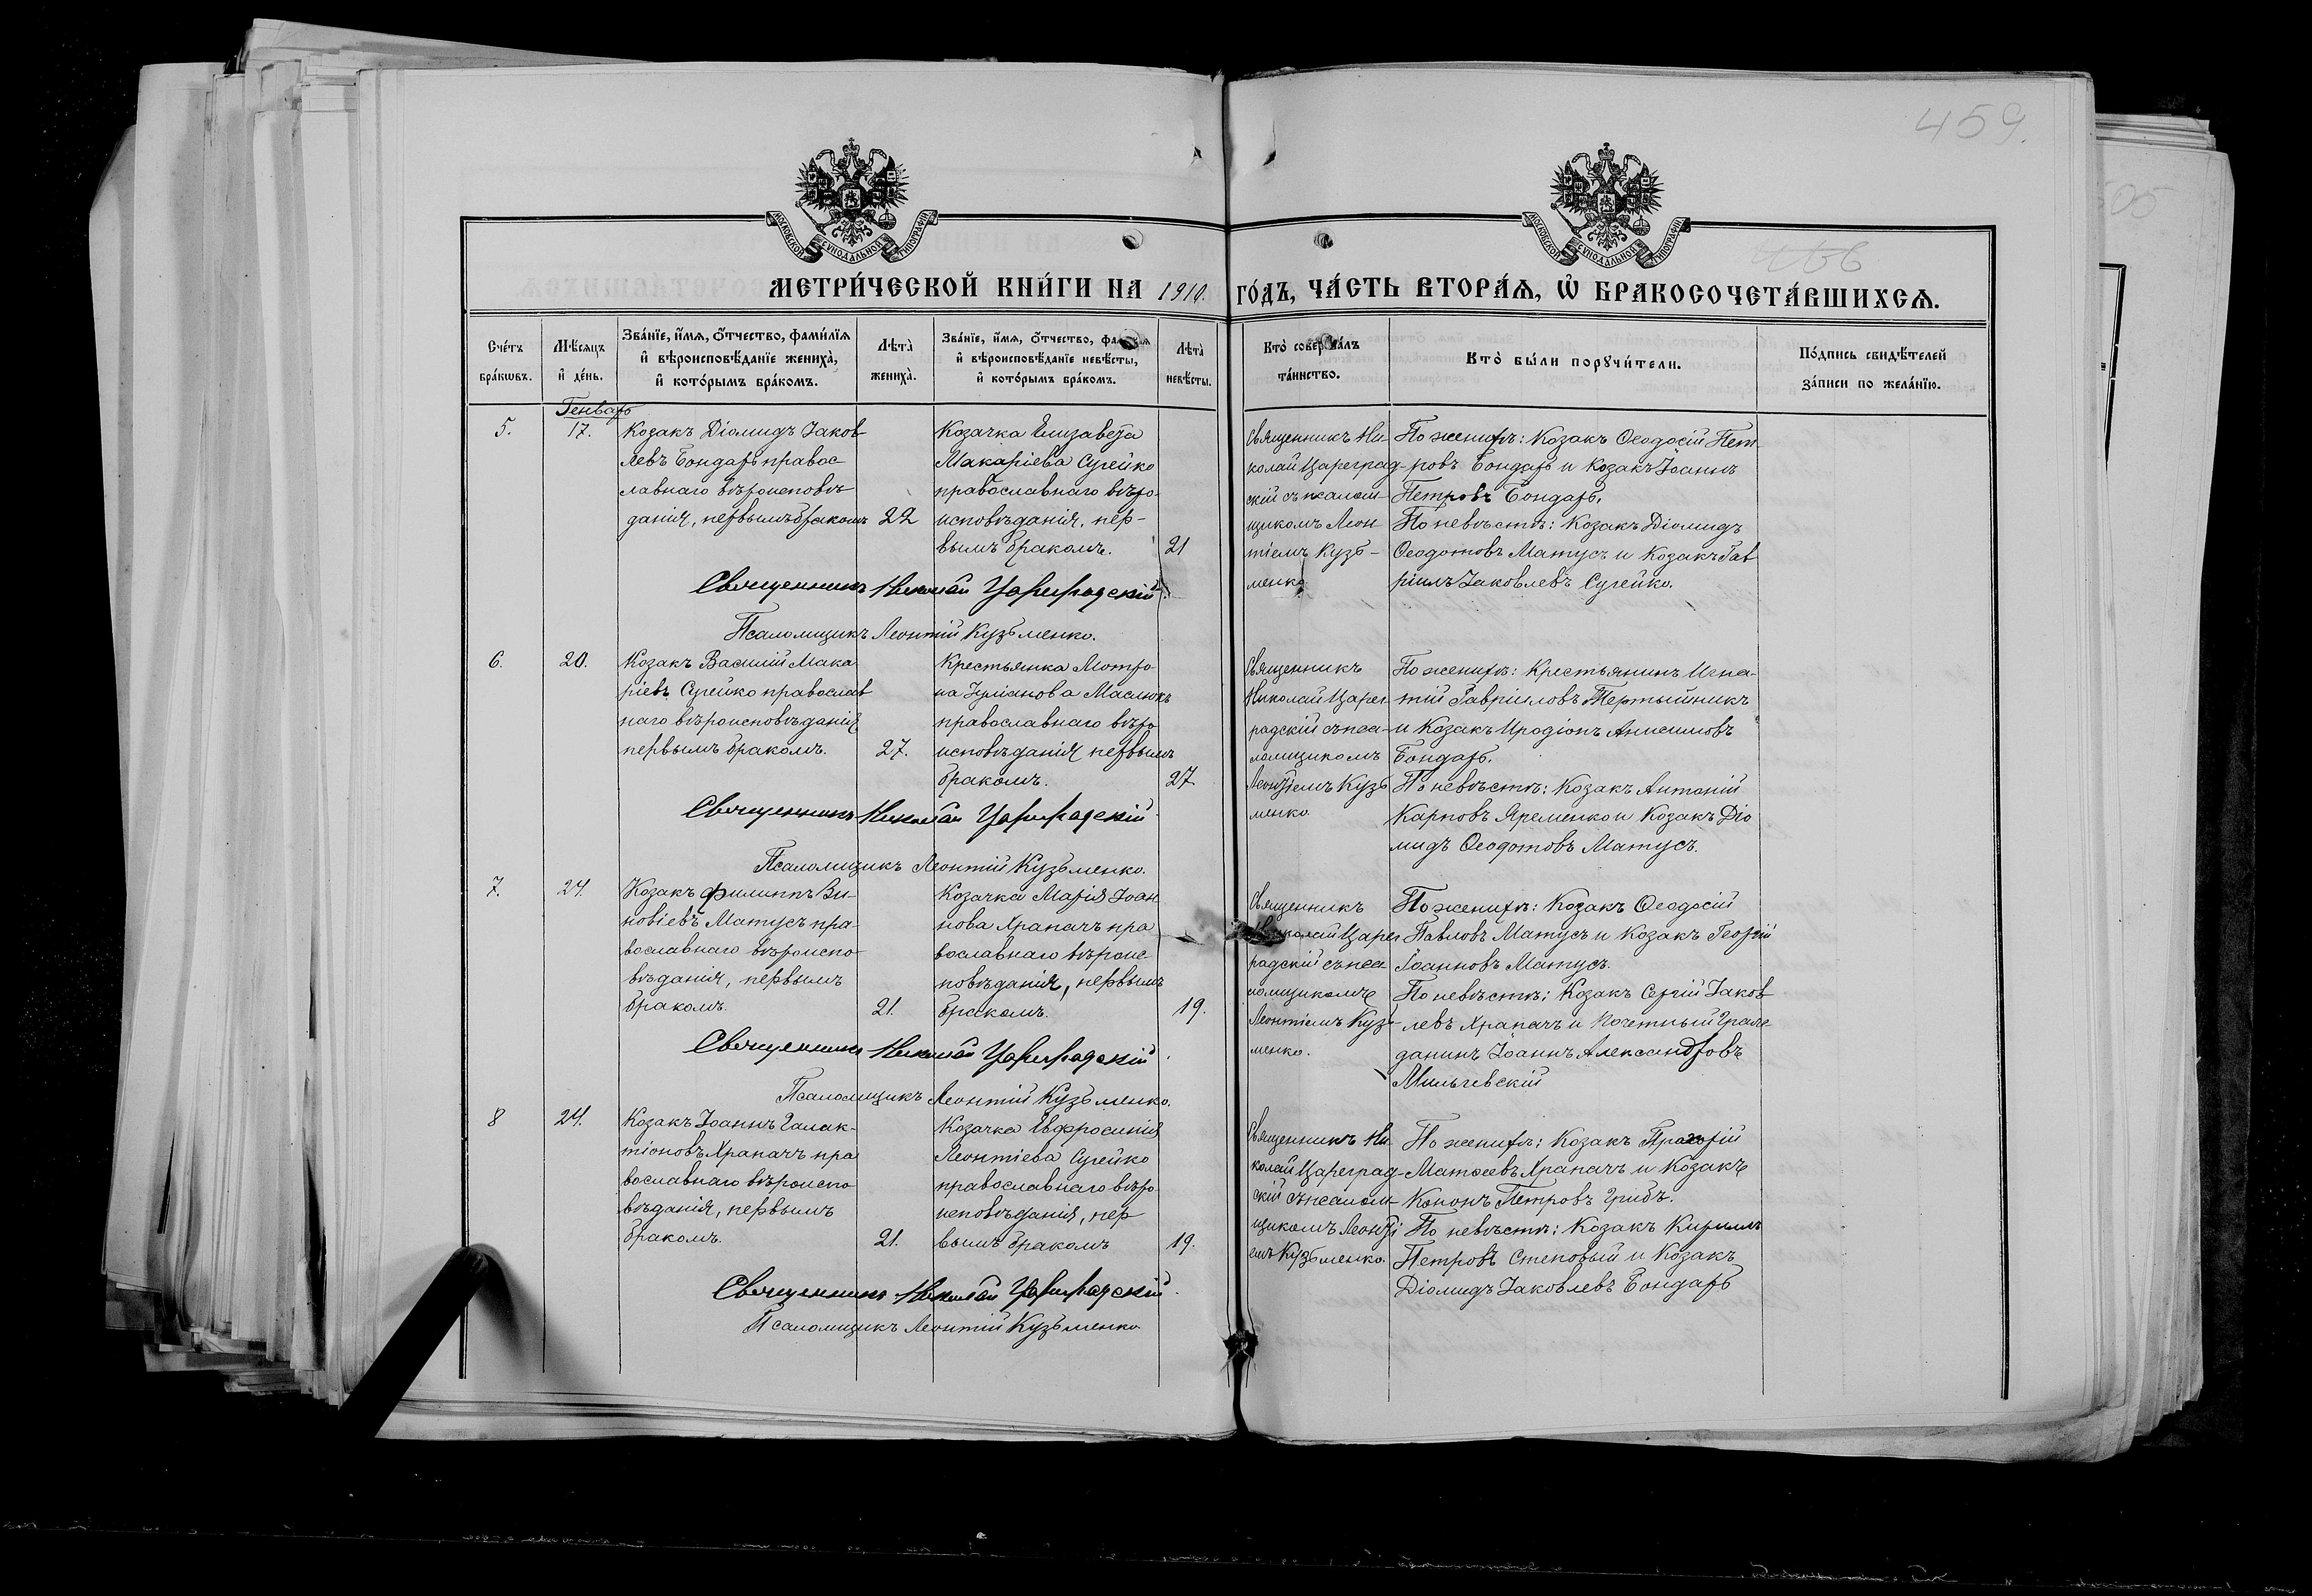 459.
466
МОСКОВСКОЙ СѴНОДАЛЬНОЙ ТИПОГРАФІИ
МОСКОВСКОЙ СѴНОДАЛЬНОЙ ТИПОГРАФІИ
МЕТРИ́ЧЕСКОЙ КНИ́ГИ НА 1910. ГО́ДЪ, ЧА́СТЬ ВТОРА́Ѧ, Ѡ҆ БРАКОСОЧЕТА́ВШИХСѦ.
Сче́тъ бра́кѡвъ.
Мѣ́сѧцъ и҆ де́нь.
Зва́нїе, и҆́мѧ, ѻ҆́тчество, фами́лїѧ
и҆ вѣроисповѣ́данїе жениха̀,
и҆ кото́рымъ бра́комъ.
Лѣта̀ жениха̀.
Зва́нїе, и҆́мѧ, ѻ҆́тчество, фами́лїѧ
и҆ вѣроисповѣ́данїе невѣ́сты,
и҆ кото́рымъ бра́комъ.
Лѣта̀ невѣ́сты.
Кто̀ соверша́лъ та́инство.
Кто̀ бы́ли порꙋчи́тели.
По́дпись свидѣ́телей за́писи по жела́нїю.
Генварь
5.
17.
Козакъ Діомидъ Іаков
левъ Бондарь правос
лавнаго вѣроисповѣ
данія, первымъ бракомъ
22
Козачка Елизавета
Макаріева Сулейко
православнаго вѣро
исповѣданія, пер-
вымъ бракомъ.
21
Священникъ Ни
колай Цареград-
скій съ псалом-
щикомъ Леон
тіемъ Кузь-
менко
По женихѣ: Козакъ Ѳеодосій Пет
ровъ Бондарь и Козакъ Іоаннъ
Петровъ Бондарь.
По невѣстѣ: Козакъ Діомидъ
Ѳеодотовъ Матусъ и Козакъ Гав
ріилъ Іаковлевъ Сулейко.
Священникъ Николай Цареградскій.
Псаломщикъ Леонтій Кузьменко.
6.
20.
Козакъ Василій Мака
ріевъ Сулейко православ
наго вѣроисповѣданія
первымъ бракомъ.
27.
Крестьянка Мотро
на Іуліанова Маслюкъ
православнаго вѣро
исповѣданія первымъ
бракомъ.
27
Священникъ
Николай Царег
радскій съ пса-
ломщикомъ
Леонтіемъ Кузь
менко
По женихѣ: Крестьянинъ Игна-
тій Гавріиловъ Тертышникъ
и Козакъ Иродіонъ Анисимовъ
Бондарь.
По невѣстѣ: Козакъ Антоній
Карповъ Яременко и Козакъ Діо
мидъ Ѳеодотовъ Матусъ.
Священникъ Николай Цареградскій
Псаломщикъ Леонтій Кузьменко.
7.
24.
Козакъ Филиппъ Зи-
новіевъ Матусъ пра-
вославнаго вѣроиспо
вѣданія, первымъ
бракомъ.
21.
Козачка Марія Іоан
нова Храпачъ пра
вославнаго вѣроис
повѣданія, первымъ
бракомъ.
19.
Священникъ
Николай Царег
радскій съ пса
ломщикомъ
Леонтіемъ Кузь
менко.
По женихѣ: Козакъ Ѳеодосій
Павловъ Матусъ и Козакъ Георгій
Іоанновъ Матусъ.
По невѣстѣ: Козакъ Сергій Іаков
левъ Храпачъ и Почетный Граж-
данинъ Іоаннъ Александровъ
Мильчевскій
Священникъ Николай Цареградскій
Псаломщикъ Леонтій Кузьменко.
8
24.
Козакъ Іоаннъ Галак-
тіоновъ Храпачъ пра
вославнаго вѣроиспо
вѣданія, первымъ
бракомъ.
21.
Козачка Евфросинія
Леонтіева Сулейко
православнаго вѣро-
исповѣданія, пер
вымъ бракомъ
19.
Священникъ Ни
колай Цареград-
скій съ псалом-
щикомъ Леонті
емъ Кузьменко.
По женихѣ: Козакъ
Матѳеевъ Храпачъ и Козакъ
Кононъ Петровъ Грибъ.
По невѣстѣ: Козакъ Кириллъ
Петровъ Степовый и Козакъ
Діомидъ Іаковлевъ Бондарь
Священникъ Николай Цареградскій
Псаломщикъ Леонтій Кузьменко